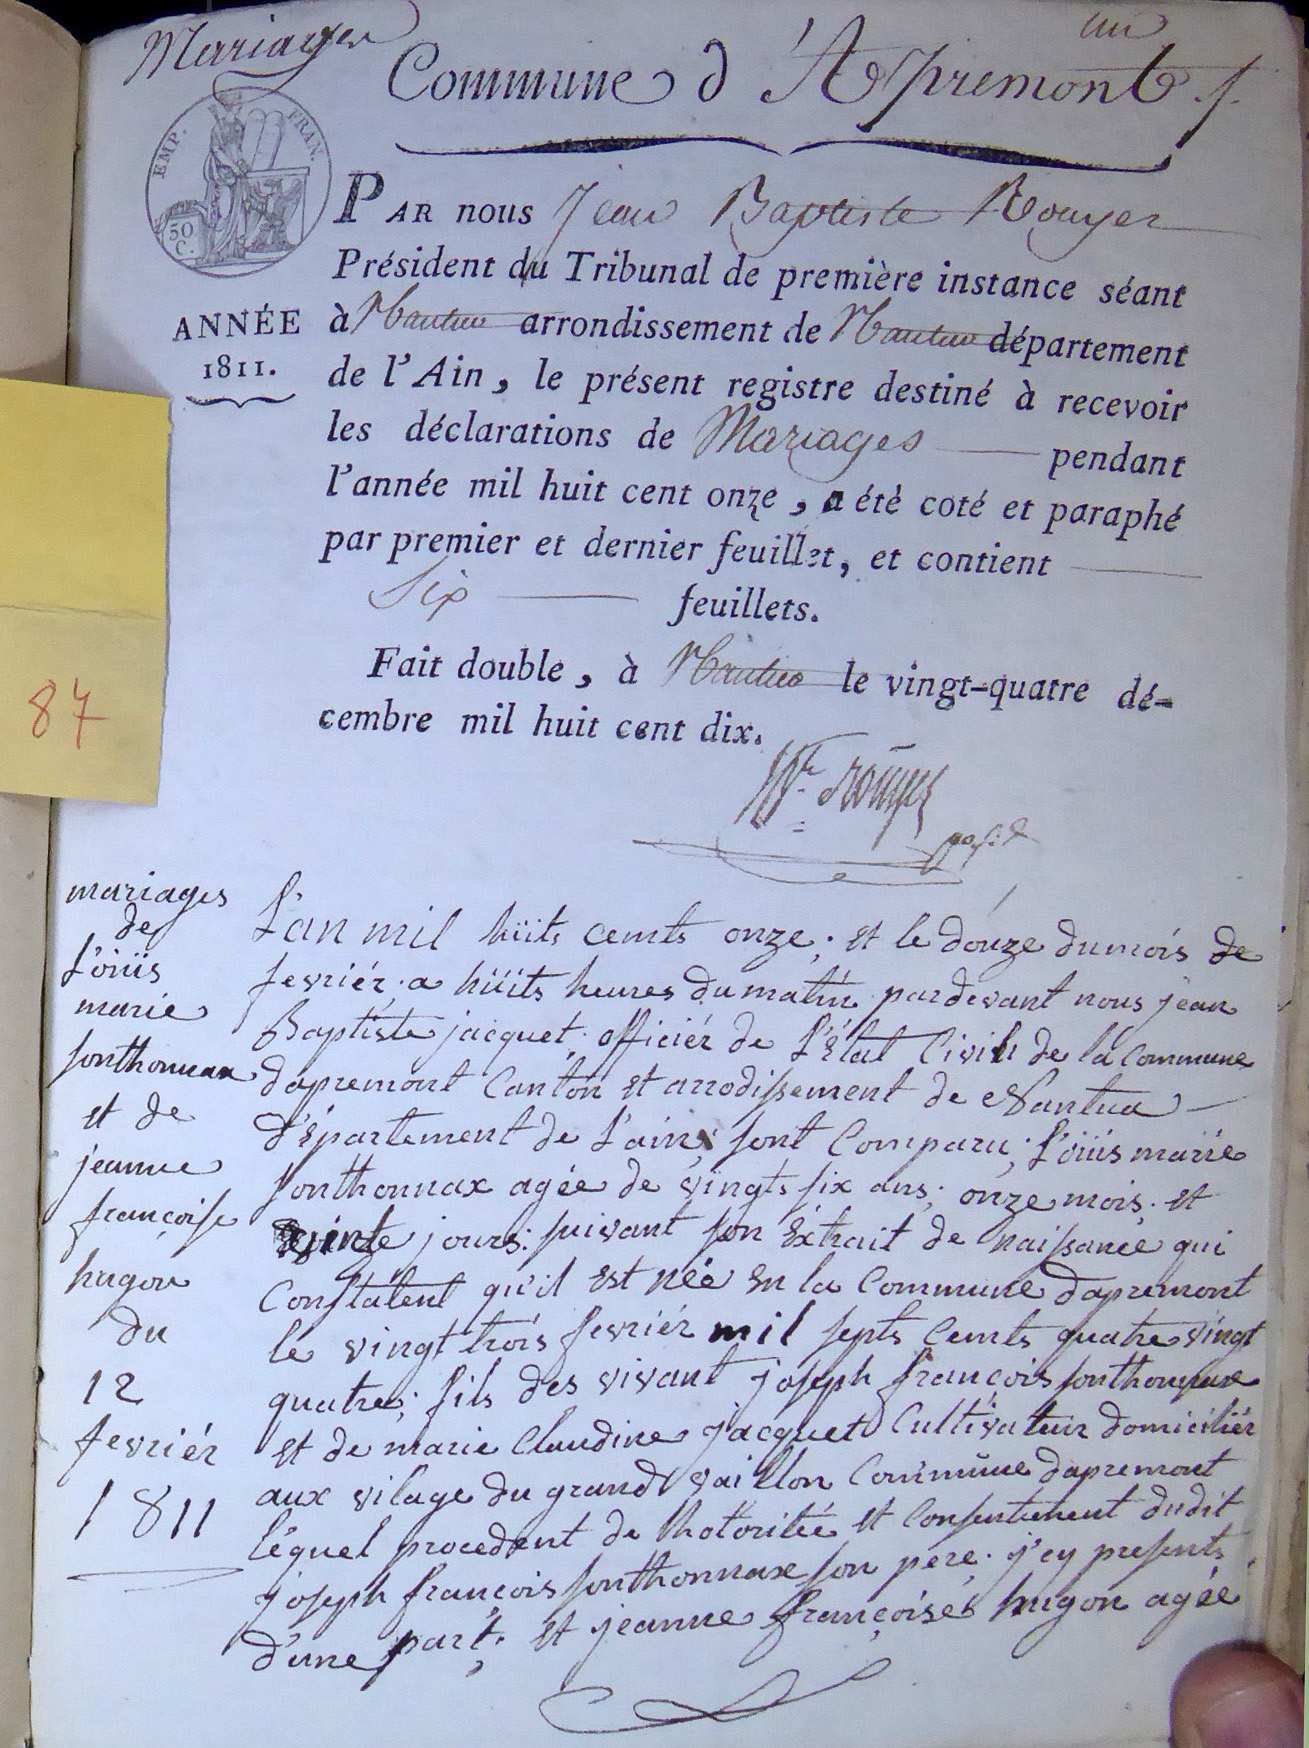 Mariages
un
Commune d'Apremont
EMP. FRAN.
50 C.
ANNÉE
1811.
PAR nous Jean Baptiste Rouyer
Président du Tribunal de première instance séant
à Nantua arrondissement de Nantua département
de l'Ain, le présent registre destiné à recevoir
les déclarations de Mariages pendant
l'année mil huit cent onze, a été coté et paraphé
par premier et dernier feuillet, et contient
Six feuillets.
Fait double, à Nantua le vingt-quatre dé-
cembre mil huit cent dix.
Rouyer
87
mariages
de
Loüis
marie
sonthonnax
et de
jeanne
françoise
hugon
du
12
fevriér
1811
L'an mil hüits cents onze; et le douze du mois de
fevriér; a hüits heures du matin pardevant nous jean
Baptiste jacquet; officiér de L'état Civil de la commune
dapremont Canton et arrodissement de Nantua
d'épartement de L'ain; sont Comparu; Loüis marie
sonthonnax agée de vingts six ans; onze mois; et
vinte jours; suivant son éxtrait de naissance qui
Constatent qu'il est née en la Commune dapremont
le vingt trois fevriér mil septs Cents quatre vingt
quatre; fils des vivant joseph françois sonthonnax
et de marie Claudine jacquet Cultivateur domiciliér
aux vilage du grand vaillon Commune dapremont
léquel procedent de Lhotoritée et Consentement dudit
joseph françois sonthonnax son pere; j'cy presents
d'une part; et jeanne françoise hugon agée